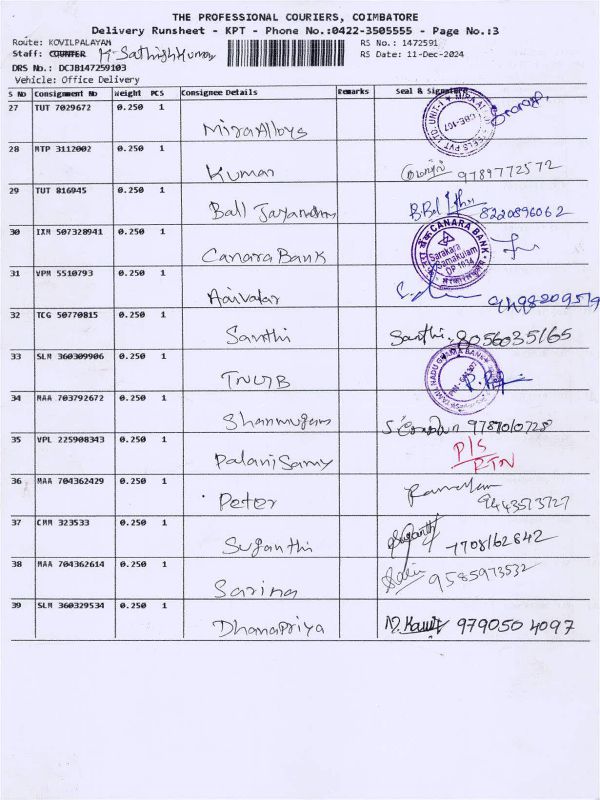 THE PROFESSIONAL COURIERS, COIMBATORE
Delivery Runsheet - KPT - Phone No.:0422-3505555 - Page No.:3
Route: KOVILPALAYAM RS No.: 1472591
Staff: COUNTER M. Sathish Kumar RS Date: 11-Dec-2024
DRS No.: DCJB147259103
Vehicle: Office Delivery
S No Consignment No Weight PCS Consignee Details Remarks Seal & Signature
27 TUT 7029672 0.250 1 Mira Alloys
28 MTP 3112002 0.250 1 Kumar 9789772572
29 TUT 816945 0.250 1 Ball 8220896062
30 IXM 507328941 0.250 1 Canara Bank CANARA BANK Sarakara Samakulam DP 1034
31 VPM 5510793 0.250 1
32 TCG 50770815 0.250 1 Santhi Santhi. 8056035165
33 SLM 360309906 0.250 1 TNGB TAMIL NADU GRAMA BANK
34 MAA 703792672 0.250 1 Shanmugam 9787010728
35 VPL 225908343 0.250 1 Palani Samy P/S
RTN
36 MAA 704362429 0.250 1 Peter 9443573727
37 CMM 323533 0.250 1 Suganthi 7708162842
38 MAA 704362614 0.250 1 Sarina 9585973532
39 SLM 360329534 0.250 1 Dhanapriya 979050 4097